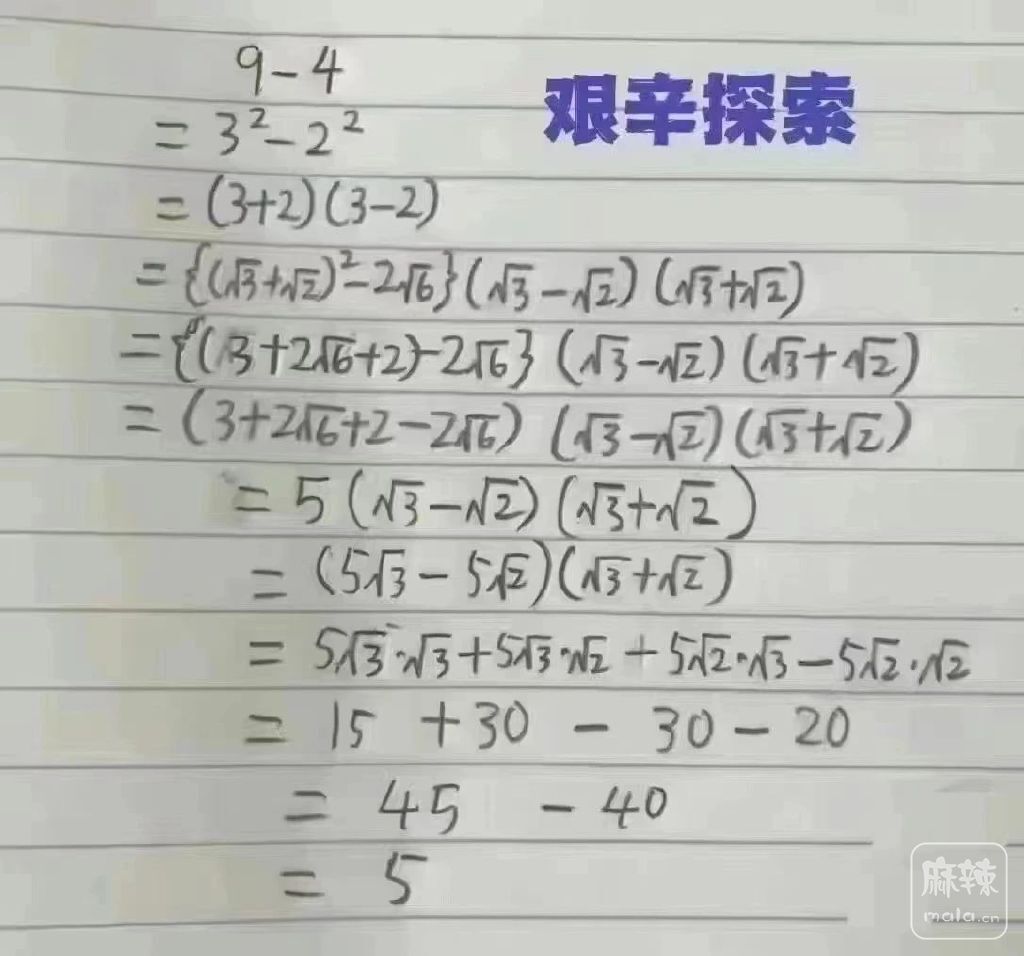 9-4
艰辛探索
= 3²-2²
= (3+2)(3-2)
= {(√3+√2)²-2√6}(√3-√2)(√3+√2)
= {(3+2√6+2)-2√6}(√3-√2)(√3+√2)
= (3+2√6+2-2√6)(√3-√2)(√3+√2)
= 5(√3-√2)(√3+√2)
= (5√3-5√2)(√3+√2)
= 5√3·√3+5√3·√2+5√2·√3-5√2·√2
= 15 +30 - 30-20
= 45 -40
= 5
麻辣
mala.cn